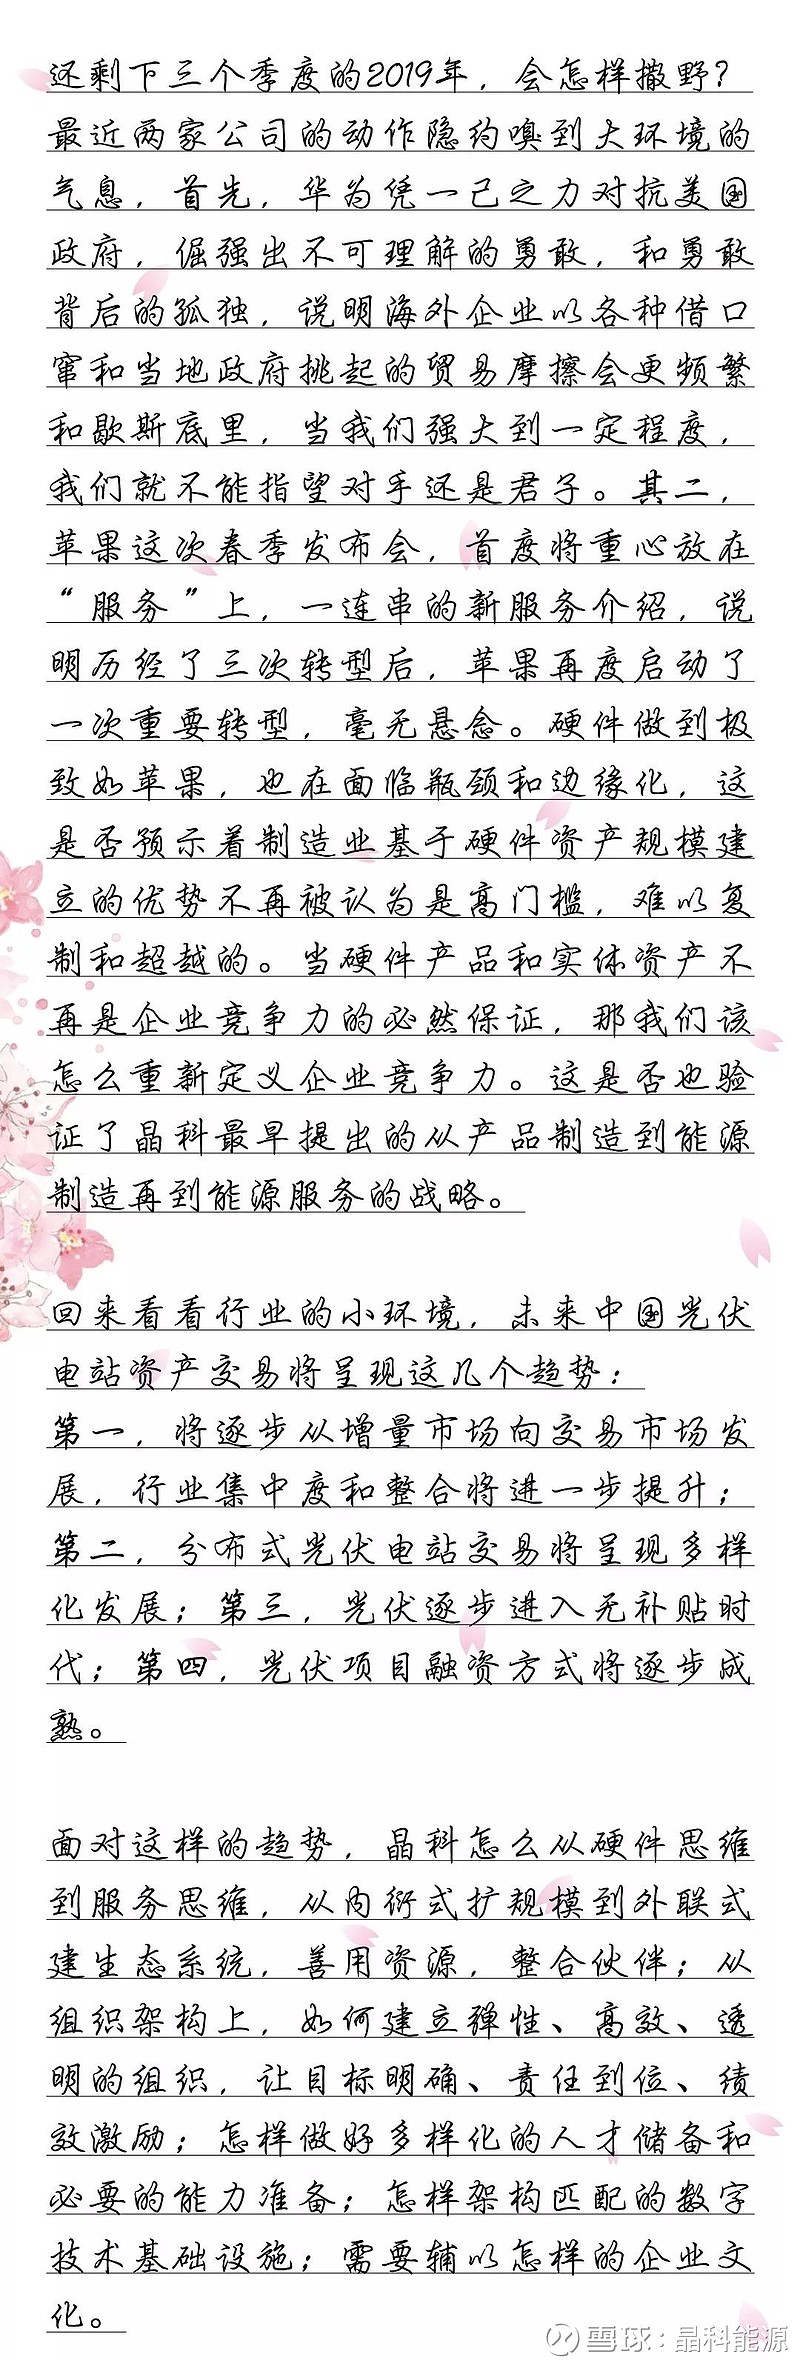 还剩下三个季度的2019年，会怎样撒野？
最近两家公司的动作隐约嗅到大环境的
气息，首先，华为凭一己之力对抗美国
政府，倔强出不可理解的勇敢，和勇敢
背后的孤独，说明海外企业以各种借口
窜和当地政府挑起的贸易摩擦会更频繁
和歇斯底里，当我们强大到一定程度，
我们就不能指望对手还是君子。其二，
苹果这次春季发布会，首度将重心放在
“服务”上，一连串的新服务介绍，说
明历经了三次转型后，苹果再度启动了
一次重要转型，毫无悬念。硬件做到极
致如苹果，也在面临瓶颈和边缘化，这
是否预示着制造业基于硬件资产规模建
立的优势不再被认为是高门槛，难以复
制和超越的。当硬件产品和实体资产不
再是企业竞争力的必然保证，那我们该
怎么重新定义企业竞争力。这是否也验
证了晶科最早提出的从产品制造到能源
制造再到能源服务的战略。
回来看看行业的小环境，未来中国光伏
电站资产交易将呈现这几个趋势：
第一，将逐步从增量市场向交易市场发
展，行业集中度和整合将进一步提升；
第二，分布式光伏电站交易将呈现多样
化发展；第三，光伏逐步进入无补贴时
代；第四，光伏项目融资方式将逐步成
熟。
面对这样的趋势，晶科怎么从硬件思维
到服务思维，从内衍式扩规模到外联式
建生态系统，善用资源，整合伙伴；从
组织架构上，如何建立弹性、高效、透
明的组织，让目标明确、责任到位、绩
效激励；怎样做好多样化的人才储备和
必要的能力准备；怎样架构匹配的数字
技术基础设施；需要辅以怎样的企业文
化。
雪球：晶科能源